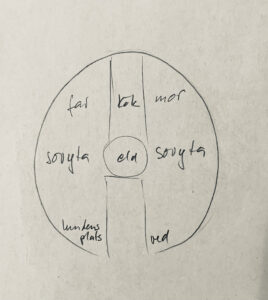 far kök mor
sovyta eld sovyta
hundens ved
plats